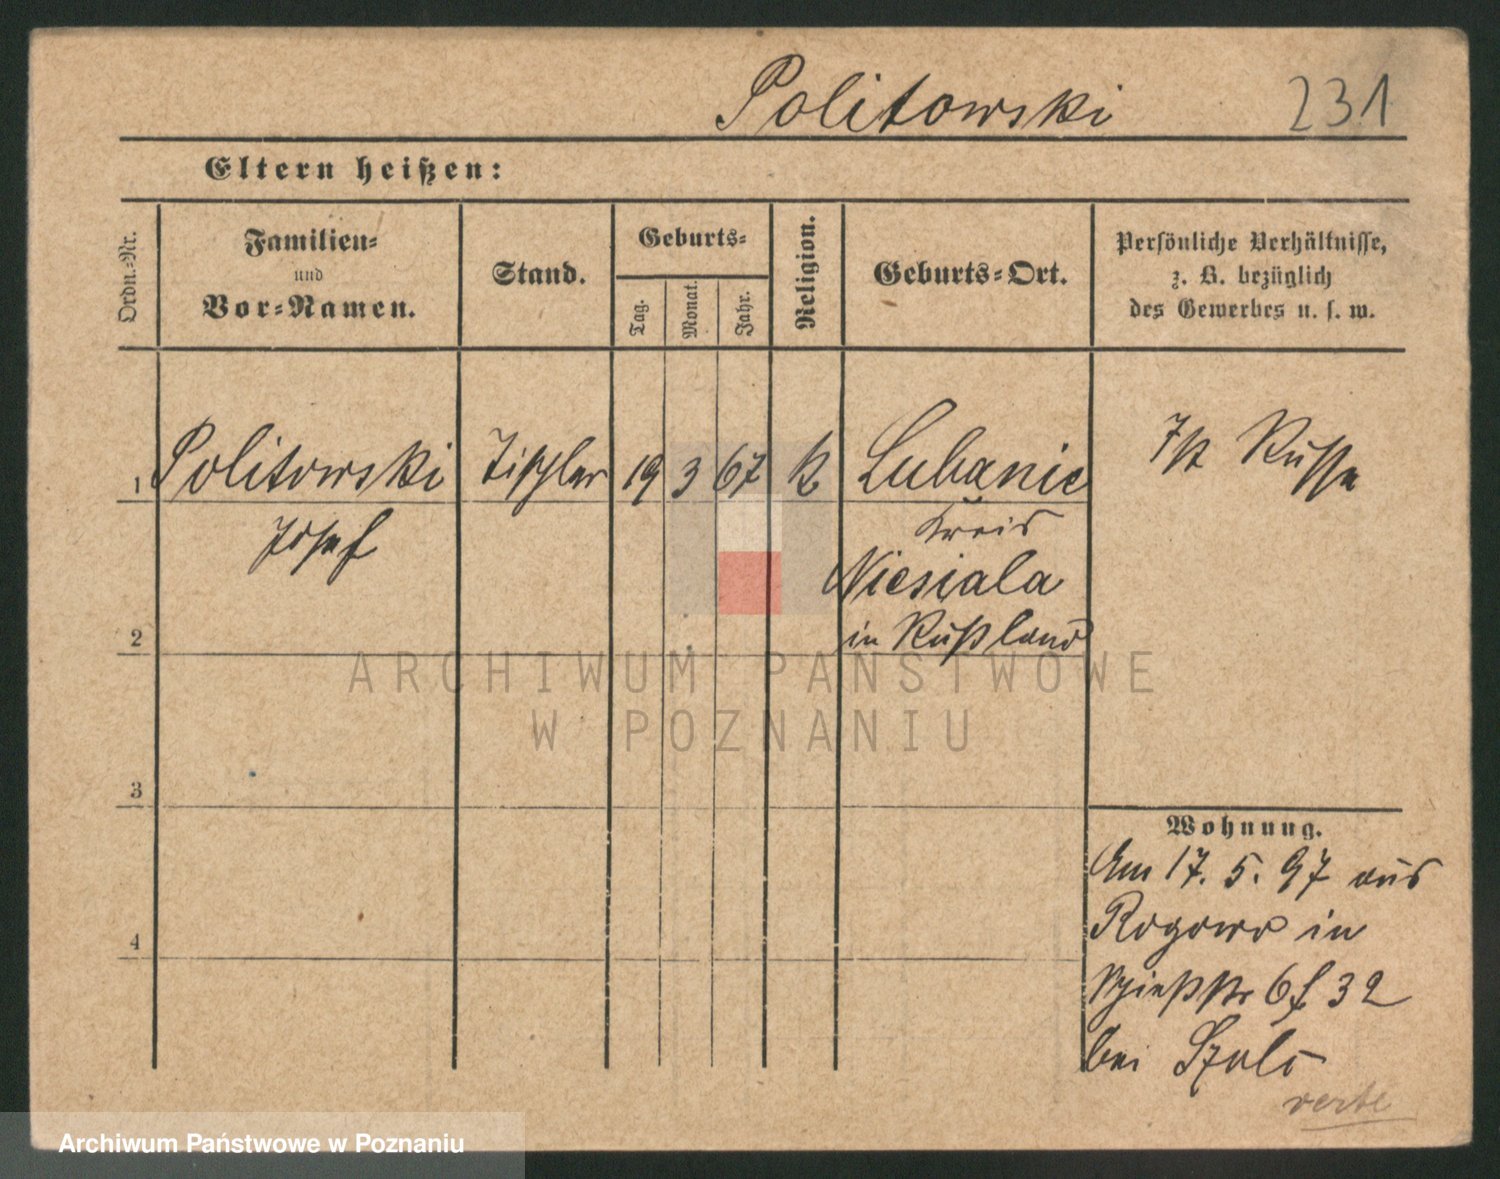 Politowski 231
Eltern heißen:
Ordn.-Nr.
Familien-
und
Vor-Namen.
Stand.
Geburts-
Tag.
Monat.
Jahr.
Religion.
Geburts-Ort.
Persönliche Verhältnisse,
z. B. bezüglich
des Gewerbes u. s. w.
1 Politowski Tischler 19 3 67 k Lubanie Ist Russe
Josef Kreis
Niesiala
2 in Rußland
3
4
Wohnung.
Am 17. 5. 97 aus
Rogowo in
Schießstr 6 f 32
bei Szulc
verte
ARCHIWUM PAŃSTWOWE
W POZNANIU
Archiwum Państwowe w Poznaniu